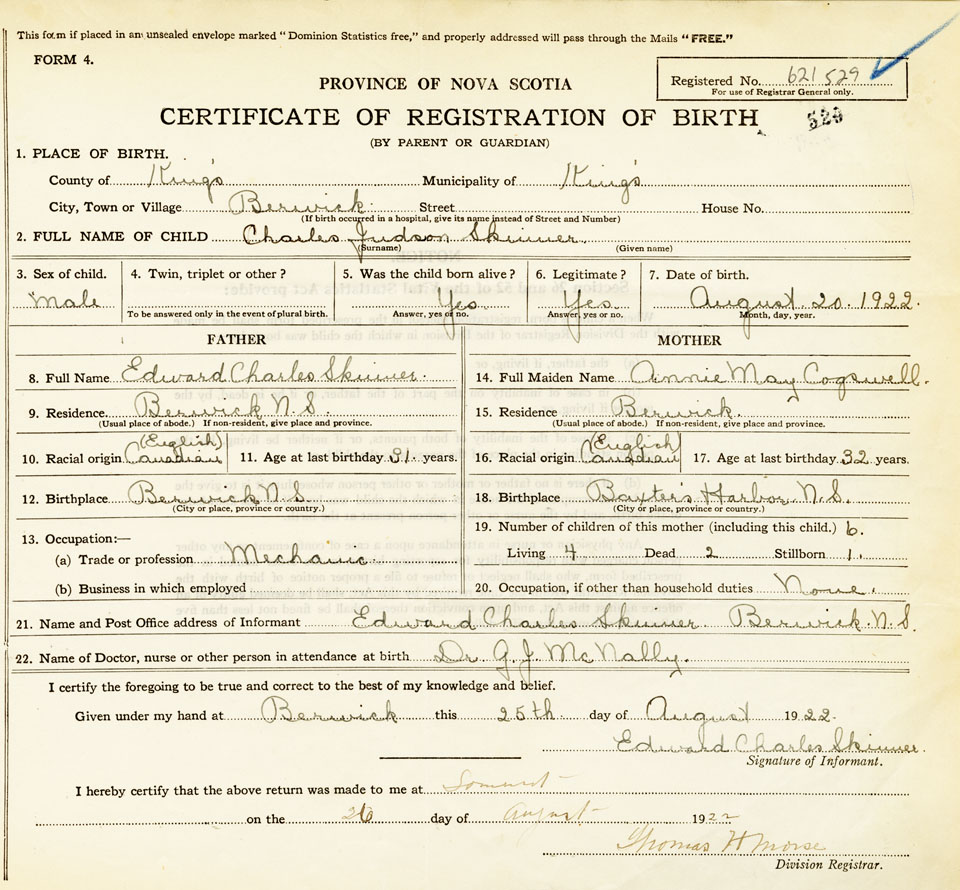 This form if placed in an unsealed envelope marked "Dominion Statistics free," and properly addressed will pass through the Mails "FREE."
FORM 4.
Registered No. 621529
For use of Registrar General only.
PROVINCE OF NOVA SCOTIA
CERTIFICATE OF REGISTRATION OF BIRTH
529
(BY PARENT OR GUARDIAN)
1. PLACE OF BIRTH.
County of King's Municipality of King's
City, Town or Village Berwick Street House No.
(If birth occurred in a hospital, give its name instead of Street and Number)
2. FULL NAME OF CHILD Charles Judson Skinner
(Surname) (Given name)
3. Sex of child. 4. Twin, triplet or other? 5. Was the child born alive? 6. Legitimate? 7. Date of birth.
Male Yes Yes August 20. 1922.
To be answered only in the event of plural birth. Answer, yes or no. Answer, yes or no. Month, day, year.
FATHER MOTHER
8. Full Name Edward Charles Skinner. 14. Full Maiden Name Annie May Cogswell.
9. Residence. Berwick N.S. 15. Residence Berwick.
(Usual place of abode.) If non-resident, give place and province. (Usual place of abode.) If non-resident, give place and province.
(English) (English)
10. Racial origin Canadian 11. Age at last birthday 31 years. 16. Racial origin Canadian 17. Age at last birthday 32 years.
12. Birthplace Berwick N.S. 18. Birthplace Baxter's Harbor N.S.
(City or place, province or country.) (City or place, province or country.)
13. Occupation:— 19. Number of children of this mother (including this child.) 6.
(a) Trade or profession Mechanic. Living 4 Dead 2 Stillborn 1.
(b) Business in which employed 20. Occupation, if other than household duties None.
21. Name and Post Office address of Informant Edward Charles Skinner Berwick. N.S.
22. Name of Doctor, nurse or other person in attendance at birth Dr G. J. McNally.
I certify the foregoing to be true and correct to the best of my knowledge and belief.
Given under my hand at Berwick this 25th day of August 1922.
Edward Charles Skinner.
Signature of Informant.
I hereby certify that the above return was made to me at Somerset
on the 26 day of August 1922
Thomas H Morse
Division Registrar.